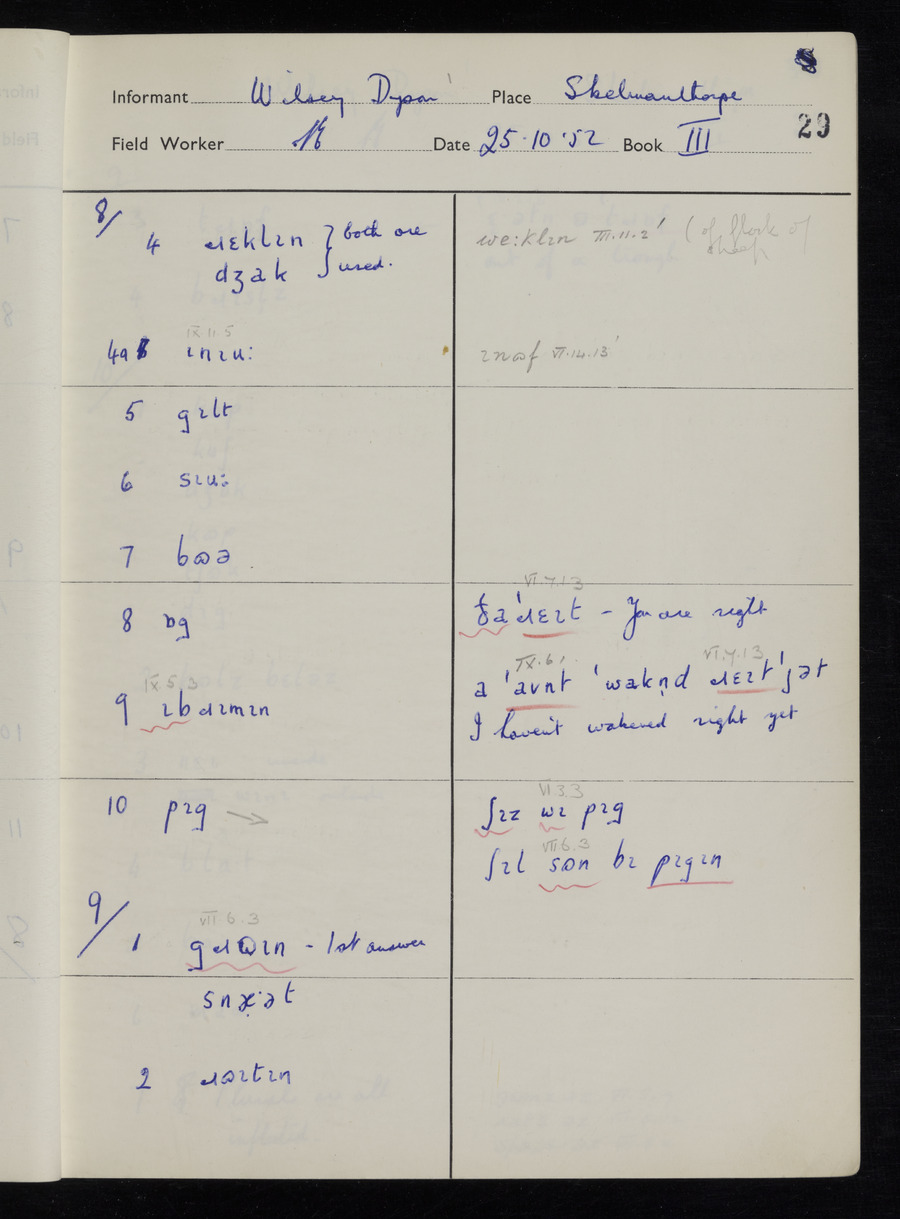 Informant Wilsey Dyson Place Skelmanthorpe
Field Worker Date 25·10·52 Book III 29
8/
4 ɹɛklɪn } both are
dʒak } used.
we:klɪn III.11.2' (of flock of
sheep
IX 11 5
4a ɪnɪu: ɪnɷf VI.14.13'
5 gɪlt
6 sɪu:
7 bɷə
8 ɒg
VI.7.13
ða 'ɹɛɪt – You are right
IX 5 3
9 ɪbɹɪmɪn
IX.6' VI.7.13
a 'avnt 'wakn̩d ɹɛɪt 'jət
I haven't wakened right yet
10 pɪg →
VI 3 3
ʃɪz wɪ pɪg
VIII 6.3
ʃɪl sɷn bɪ pɪgɪn
9/
VII 6.3
1 gɹɷɪn - 1st answer
snæ̣·ət
2 ɹɷɪtɪn